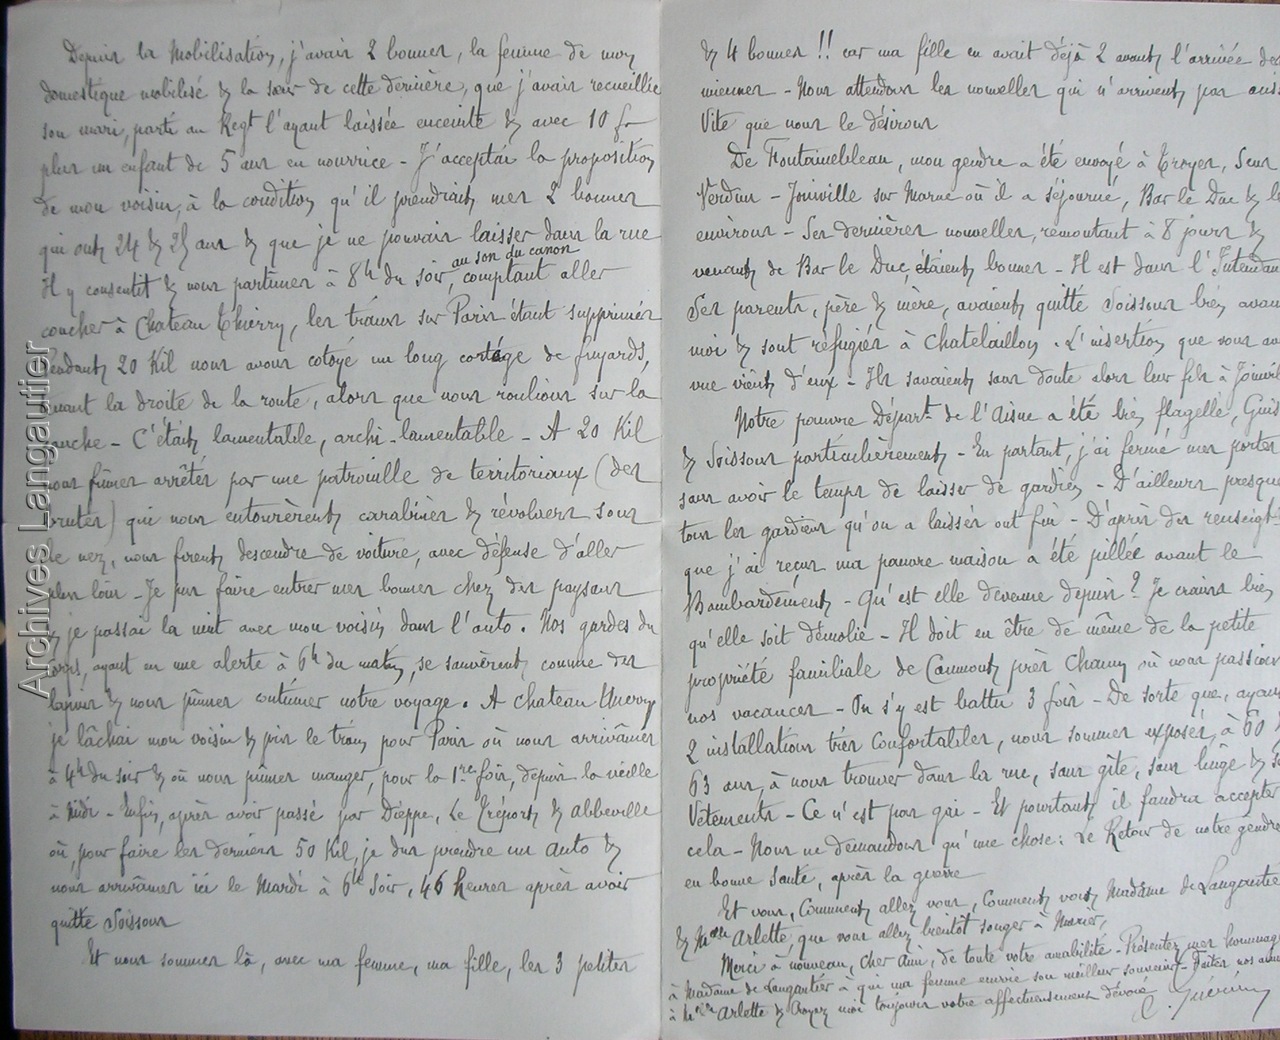 Depuis la Mobilisation, j'avais 2 bonnes, la femme de mon
domestique mobilisé & la sœur de cette dernière, que j'avais recueillie
son mari, parti au Regt l'ayant laissée enceinte & avec 10 f
plus un enfant de 5 ans en nourrice - J'acceptai la proposition
de mon voisin, à la condition qu'il prendrait mes 2 bonnes
qui ont 24 & 25 ans & que je ne pouvais laisser dans la rue
au son du canon
Il y consentit & nous partîmes à 8h du soir, comptant aller
coucher à Chateau Thierry, les trains sur Paris étant supprimés
Pendant 20 Kil nous avons cotoyé un long cortège de fuyards,
tenant la droite de la route, alors que nous roulions sur la
gauche - C'était lamentable, archi-lamentable - A 20 Kil
nous fûmes arrêtés par une patrouille de territoriaux (des
brutes) qui nous entourèrent, carabines & révolvers sous
le nez, nous firent descendre de voiture, avec défense d'aller
plus loin - Je pus faire entrer mes bonnes chez des paysans
& je passai la nuit avec mon voisin dans l'auto. Nos gardes du
corps, ayant eu une alerte à 6h du matin, se sauvèrent comme des
lapins & nous pûmes continuer notre voyage. A Chateau Thierry
je lâchai mon voisin & pris le train pour Paris où nous arrivâmes
à 4h du soir & où nous pûmes manger, pour la 1re fois, depuis la veille
à Midi - Enfin, après avoir passé par Dieppe, Le Tréport & Abbeville
où, pour faire les derniers 50 Kil, je dus prendre un auto &
nous arrivâmes ici le Mardi à 6h soir, 46 heures après avoir
quitté Soissons
Et nous sommes là, avec ma femme, ma fille, les 3 petites
& 4 bonnes !! car ma fille en avait déjà 2 avant l'arrivée des
miennes - Nous attendons les nouvelles qui n'arrivent pas aussi
vite que nous le désirons
De Fontainebleau, mon gendre a été envoyé à Troyes, Sens
Verdun - Joinville sur Marne où il a séjourné, Bar le Duc & les
environs - Ses dernières nouvelles, remontant à 8 jours &
venant de Bar le Duc, étaient bonnes - Il est dans l'Intendance
Ses parents, père & mère, avaient quitté Soissons bien avant
moi & sont réfugiés à Chatelaillon. L'insertion que vous avez
vue vient d'eux - Ils savaient sans doute alors leur fils à Joinville
Notre pauvre Départt de l'Aisne a été bien flagellé, Guise
& Soissons particulièrement - En partant, j'ai fermé mes portes
sans avoir le temps de laisser de gardien - D'ailleurs presque
tous les gardiens qu'on a laissés ont fui - D'après des renseigts
que j'ai reçus ma pauvre maison a été pillée avant le
Bombardement - Qu'est elle devenue depuis ? Je crains bien
qu'elle soit démolie - Il doit en être de même de la petite
propriété familiale de Caumont près Chauny où nous passions
nos vacances - On s'y est battu 3 fois - De sorte que, ayant
2 installations très confortables, nous sommes exposés, à 60 &
63 ans, à nous trouver dans la rue, sans gîte, sans linge & sans
Vêtements - Ce n'est pas gai - Et pourtant il faudra accepter
cela - Nous ne demandons qu'une chose : Le Retour de notre gendre
en bonne santé, après la guerre
Et vous, Comment allez vous, Comment vont Madame de Langautier
& Melle Arlette, que vous allez bientôt songer à Marier,
Merci à nouveau, cher Ami, de toute votre amabilité - Présentez mes hommages
à Madame de Langautier à qui ma femme envoie son meilleur souvenir - Faites nos amitiés
à Melle Arlette & Croyez moi toujours votre affectueusement dévoué
C. Guérin
Archives Langautier